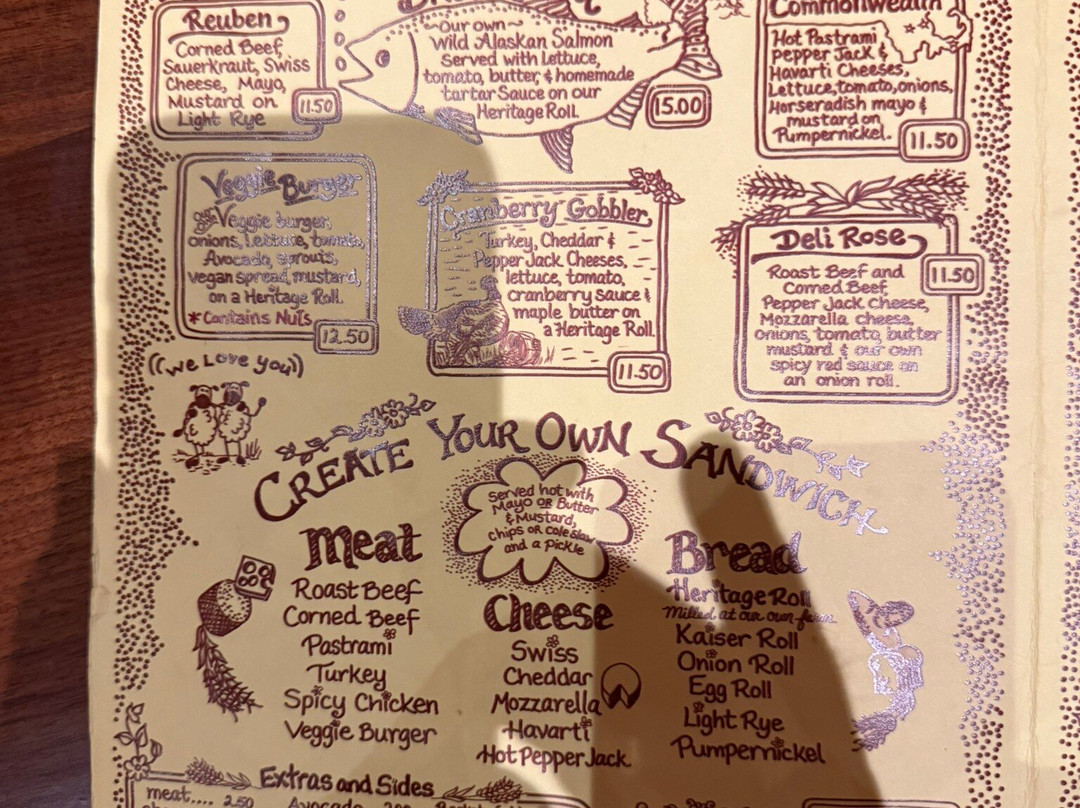 Reuben
Corned Beef,
Sauerkraut, Swiss
Cheese, Mayo,
Mustard on
Light Rye
11.50
our own
Wild Alaskan Salmon
Served with lettuce,
tomato, butter, & homemade
tartar Sauce on our
Heritage Roll.
15.00
Commonwealth
Hot Pastrami
Pepper Jack &
Havarti Cheeses,
Lettuce, tomato, onions,
Horseradish mayo &
mustard on
Pumpernickel.
11.50
Veggie Burger
Veggie burger,
onions, lettuce, tomato,
Avocado, sprouts,
vegan spread, mustard,
on a Heritage Roll.
*Contains Nuts
12.50
Cranberry Gobbler
Turkey, Cheddar &
Pepper Jack Cheeses,
lettuce, tomato,
cranberry sauce &
maple butter on
a Heritage Roll.
11.50
Deli Rose
Roast Beef and
Corned Beef,
Pepper Jack Cheese,
Mozzarella cheese,
onions, tomato, butter
mustard & our own
spicy red sauce on
an onion roll.
11.50
((we Love you))
CREATE YOUR OWN SANDWICH
Served hot with
Mayo OR Butter
& Mustard,
chips OR coleslaw
and a pickle
Meat
Roast Beef
Corned Beef
Pastrami
Turkey
Spicy Chicken
Veggie Burger
Cheese
Swiss
Cheddar
Mozzarella
Havarti
Hot Pepper Jack
Bread
Heritage Roll
Milled at our own farm
Kaiser Roll
Onion Roll
Egg Roll
Light Rye
Pumpernickel
Extras and Sides
meat.... 2.50
Avocado